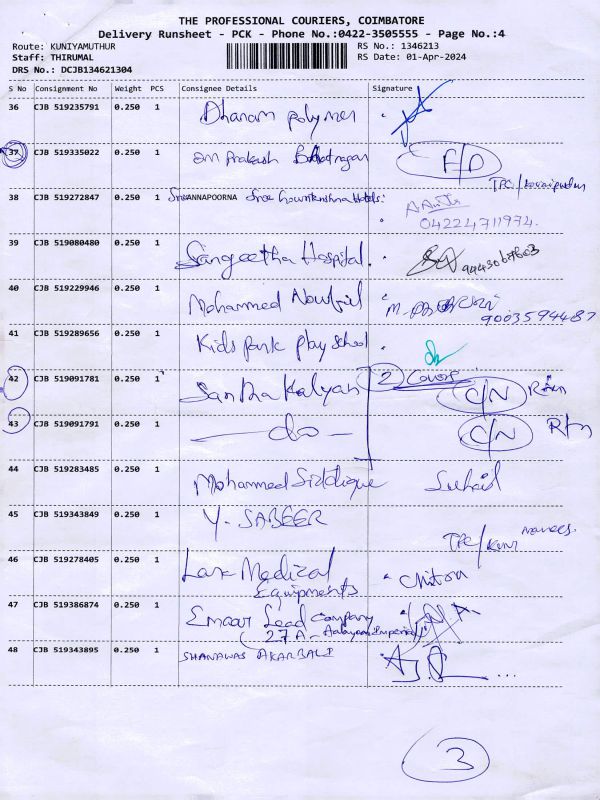 THE PROFESSIONAL COURIERS, COIMBATORE
Delivery Runsheet - PCK - Phone No.:0422-3505555 - Page No.:4
Route: KUNIYAMUTHUR RS No.: 1346213
Staff: THIRUMAL RS Date: 01-Apr-2024
DRS No.: DCJB134621304
S No Consignment No Weight PCS Consignee Details Signature
36 CJB 519235791 0.250 1 Dhanam polymer
37 CJB 519335022 0.250 1 Om Prakash F/D
TPC/
38 CJB 519272847 0.250 1 SreeANNAPOORNA Sree Hotels.
04224711974.
39 CJB 519080480 0.250 1 Sangeetha Hospital.
40 CJB 519229946 0.250 1 Mohammed
9003594487
41 CJB 519289656 0.250 1 Kids park play school
42 CJB 519091781 0.250 1 Santha Kalyan 2 Covers C/N
43 CJB 519091791 0.250 1 - do - C/N
44 CJB 519283485 0.250 1 Mohammed Siddique Suhail
45 CJB 519343849 0.250 1 Y. SABEER
TPC/
46 CJB 519278405 0.250 1 Lax Medical Chitra
Equipments
47 CJB 519386874 0.250 1 Emaar Lead Company
27 A -
48 CJB 519343895 0.250 1 SHANAWAS AKARBALI
3